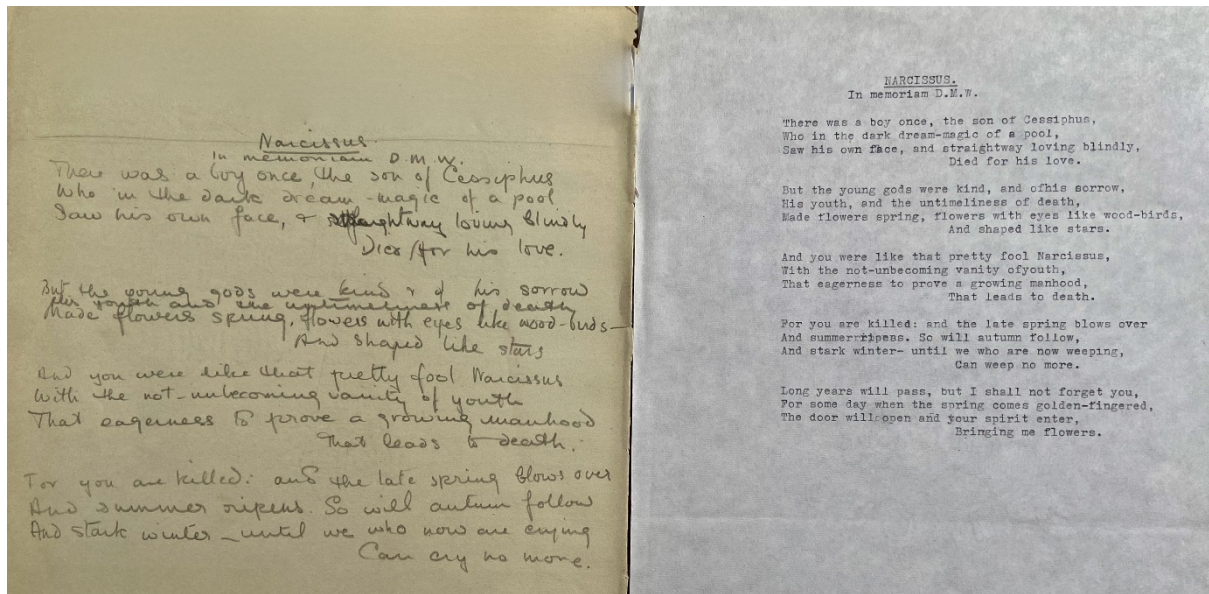 Narcissus.
In memoriam D.M.W.
There was a boy once, the son of Cessiphus
Who in the dark dream-magic of a pool,
Saw his own face, & straightway loving blindly
Died for his love.
But the young gods were kind & of his sorrow
His youth and the untimeliness of death
Made flowers spring, flowers with eyes like wood-birds
And shaped like stars
And you were like that pretty fool Narcissus
With the not-unbecoming vanity of youth
That eagerness to prove a growing manhood
That leads to death.
For you are killed: and the late spring blows over
And summer ripens. So will autumn follow
And stark winter – until we who now are crying
Can cry no more.
NARCISSUS.
In memoriam D.M.W.
There was a boy once, the son of Cessiphus,
Who in the dark dream-magic of a pool,
Saw his own face, and straightway loving blindly,
Died for his love.
But the young gods were kind, and ofhis sorrow,
His youth, and the untimeliness of death,
Made flowers spring, flowers with eyes like wood-birds,
And shaped like stars.
And you were like that pretty fool Narcissus,
With the not-unbecoming vanity ofyouth,
That eagerness to prove a growing manhood,
That leads to death.
For you are killed: and the late spring blows over
And summer ripens. So will autumn follow,
And stark winter- until we who are now weeping,
Can weep no more.
Long years will pass, but I shall not forget you,
For some day when the spring comes golden-fingered,
The door will open and your spirit enter,
Bringing me flowers.